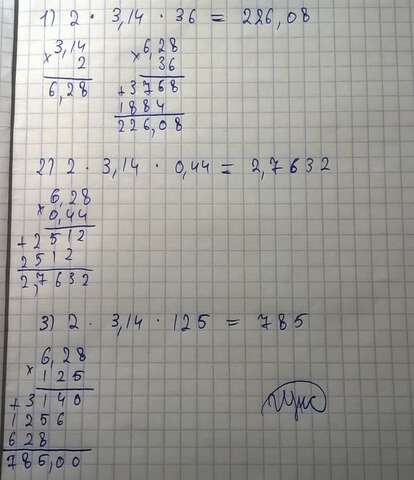 1) 2 · 3,14 · 36 = 226,08
3,14
× 2
6,28
6,28
× 36
+3768
1884
226,08
2) 2 · 3,14 · 0,44 = 2,7632
6,28
× 0,44
+2512
2512
2,7632
3) 2 · 3,14 · 125 = 785
6,28
× 125
+3140
1256
628
785,00